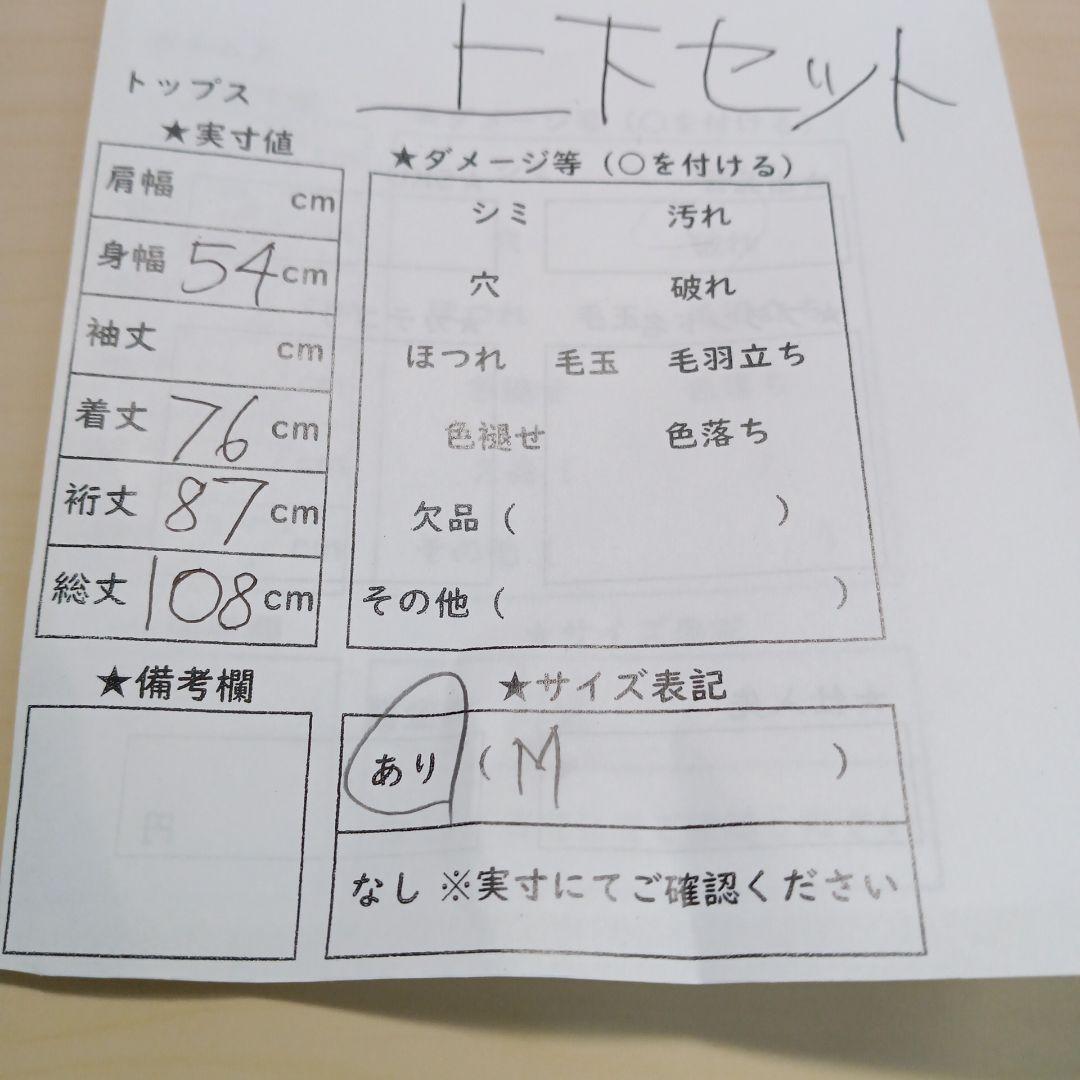 上下セット
トップス
★実寸値
肩幅 cm
身幅 54 cm
袖丈 cm
着丈 76 cm
裄丈 87 cm
総丈 108 cm
★ダメージ等（○を付ける）
シミ 汚れ
穴 破れ
ほつれ 毛玉 毛羽立ち
色褪せ 色落ち
欠品（ ）
その他（ ）
★備考欄
★サイズ表記
あり（ M ）
なし ※実寸にてご確認ください